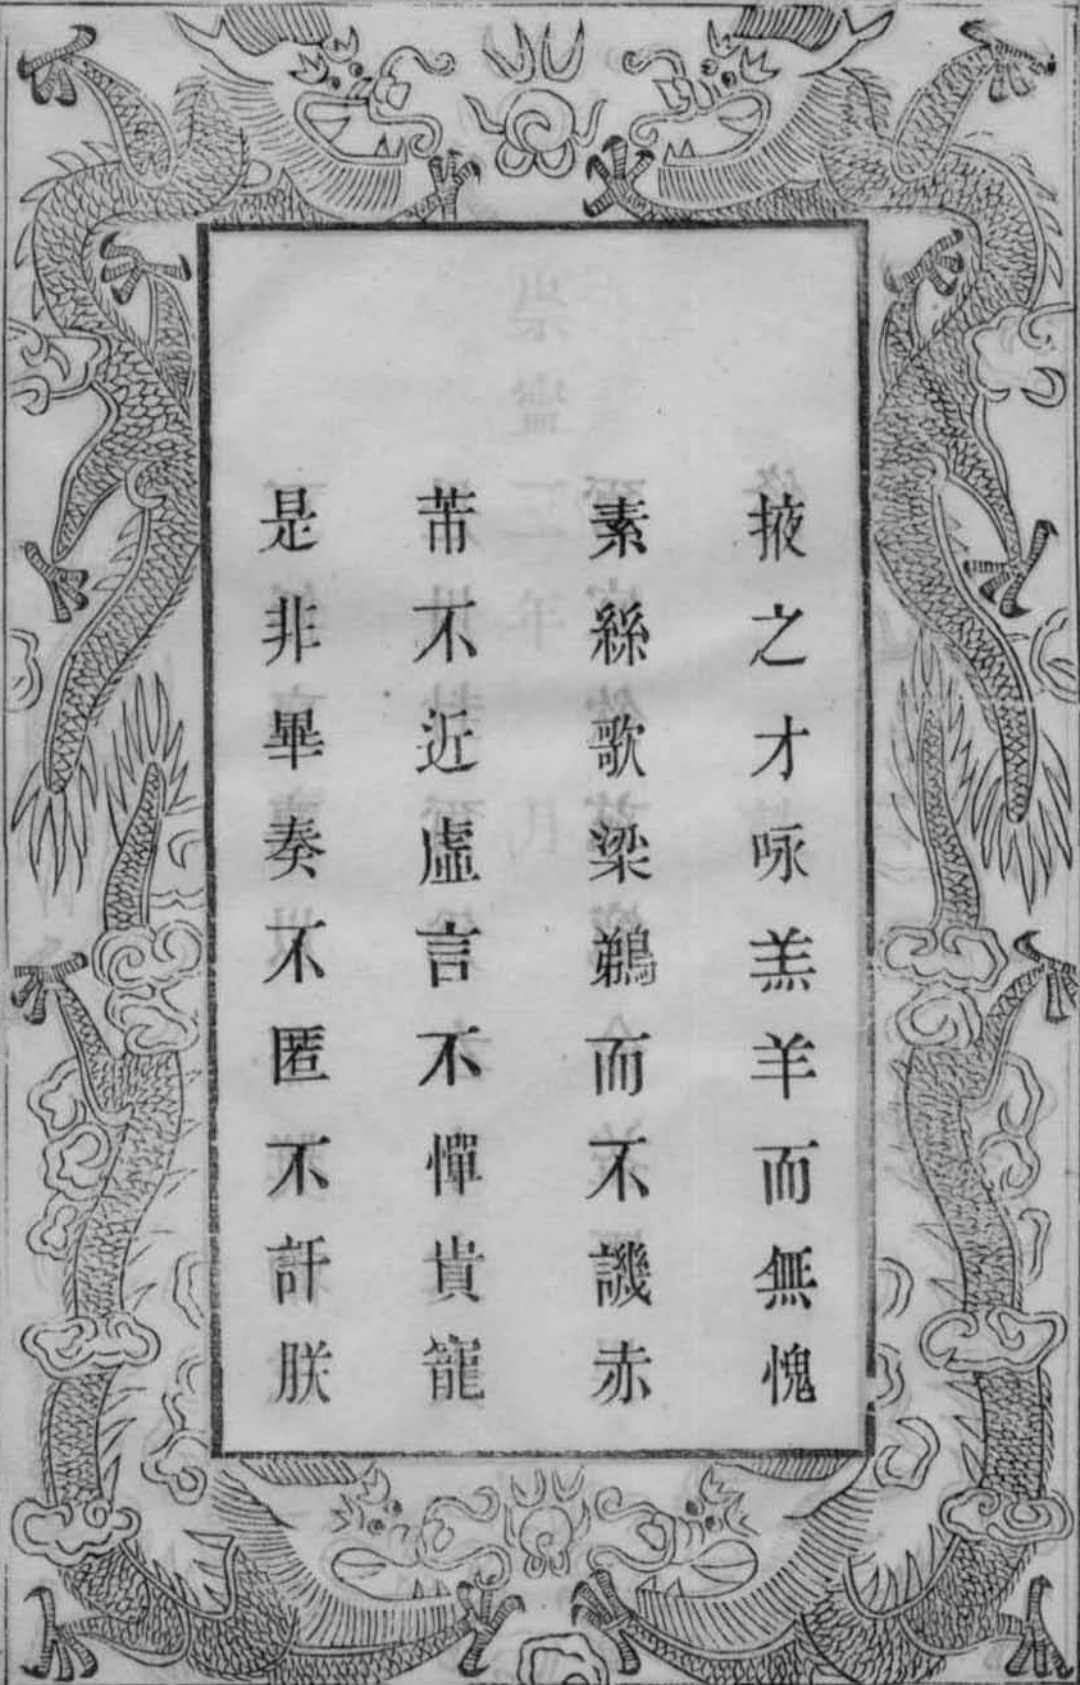 掖之才咏羔羊而無愧
素絲歌梁鵜而不譏赤
芾不近虛言不憚貴寵
是非畢奏不匿不訐朕